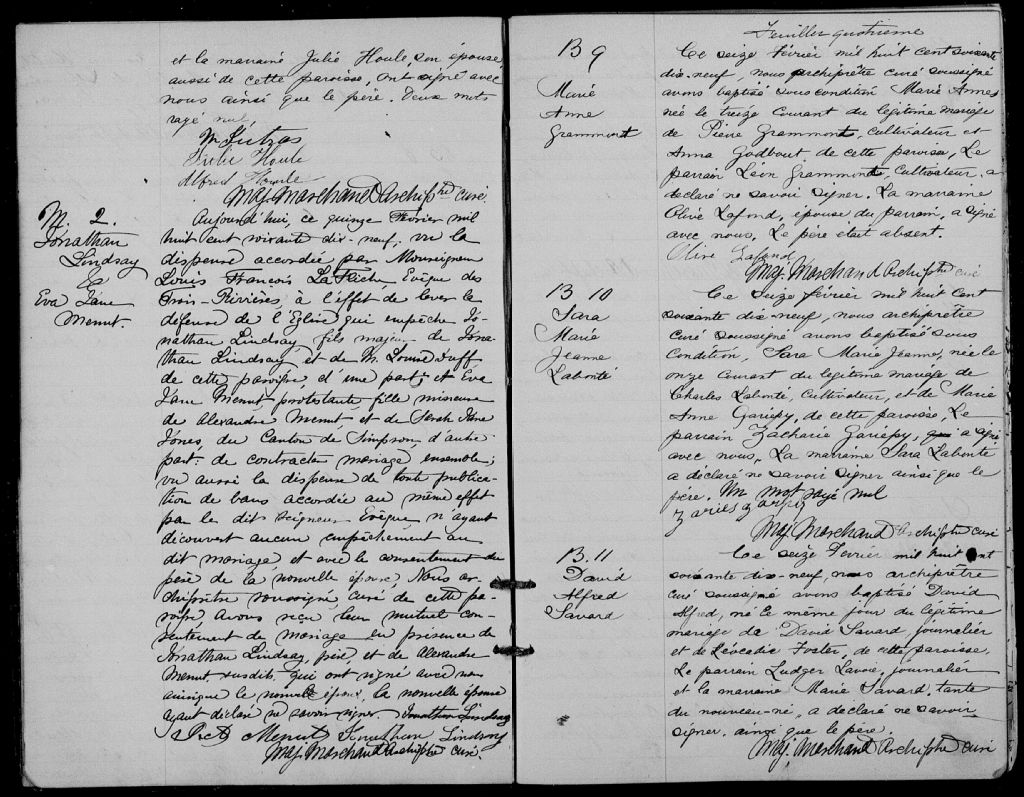 et la marraine Julie Houle, son épouse,
aussi de cette paroisse, ont signé avec
nous ainsi que le père. Deux mots
rayé nul.
Julie Houle
Alfred Houle
Maj. Marchand Archiptre curé.
M. 2.
Jonathan
Lindsay
&
Eva Jane
Menut.
Aujourd'hui, ce quinze Février mil
huit cent soixante dix-neuf, vu la
dispense accordée par Monseigneur
Louis François LaFlèche, Evêque des
Trois-Rivières, à l'effet de lever la
défense de l'Eglise qui empêche Jo-
nathan Lindsay, fils majeur de Jona-
than Lindsay et de M. Louise Duff
de cette paroisse, d'une part; et Eva
Jane Menut, protestante, fille mineure
de Alexandre Menut, et de Sarah Jane
Jones, du Canton de Simpson, d'autre
part: de contracter mariage ensemble;
vu aussi la dispense de toute publica-
tion de bans accordée au même effet
par le dit Seigneur Evêque n'ayant
découvert aucun empêchement au
dit mariage et avec le consentement du
père de la nouvelle épouse Nous ar-
chiprêtre soussigné curé de cette pa-
roisse, avons reçu leur mutuel con-
sentement de mariage en présence de
Jonathan Lindsay, père, et de Alexandre
Menut susdits, qui ont signé avec nous
ainsi que le nouvel époux, la nouvelle épouse
ayant déclaré ne savoir signer. Jonathan Lindsay
Menut Jonathan Lindsay
Maj. Marchand Archiptre curé.
Feuillet quatrieme
B 9
Marie
Anne
Grammont
Ce seize février mil huit cent soixante
dix-neuf, nous archiprêtre curé soussigné
avons baptisé sous condition Marie Anne
née le treize courant du légitime mariage
de Pierre Grammont, cultivateur et
Anna Godbout de cette paroisse, Le
parrain Léon Grammont, cultivateur, a
déclaré ne savoir signer. La marraine
Olive Lafond, épouse du parrain, a signé
avec nous. Le père était absent.
Olive Lafond
Maj. Marchand Archiptre curé
B 10
Sara
Marie
Jeanne
Labonté
Ce seize février mil huit cent
soixante dix-neuf, nous archiprêtre
curé soussigné avons baptisé sous
condition, Sara Marie Jeanne, née le
onze courant du légitime mariage de
Charles Labonté, cultivateur, et de Marie
Anne Gariépy, de cette paroisse, Le
parrain Zacharie Gariépy, qui a signé
avec nous, La marraine Sara Labonté
a déclaré ne savoir signer ainsi que le
père. Un mot rayé nul
Maj. Marchand Archiptre curé
B. 11
David
Alfred
Savard
Ce seize Février mil huit cent
soixante dix-neuf, nous archiprêtre
curé soussigné avons baptisé David
Alfred, né le même jour du légitime
mariage de David Savard, journalier
et de Léocadie Foster, de cette paroisse,
Le parrain Ludger Lavoie, journalier
et la marraine Marie Savard, tante
du nouveau-né, a déclaré ne savoir
signer, ainsi que le père.
Maj. Marchand Archiptre curé